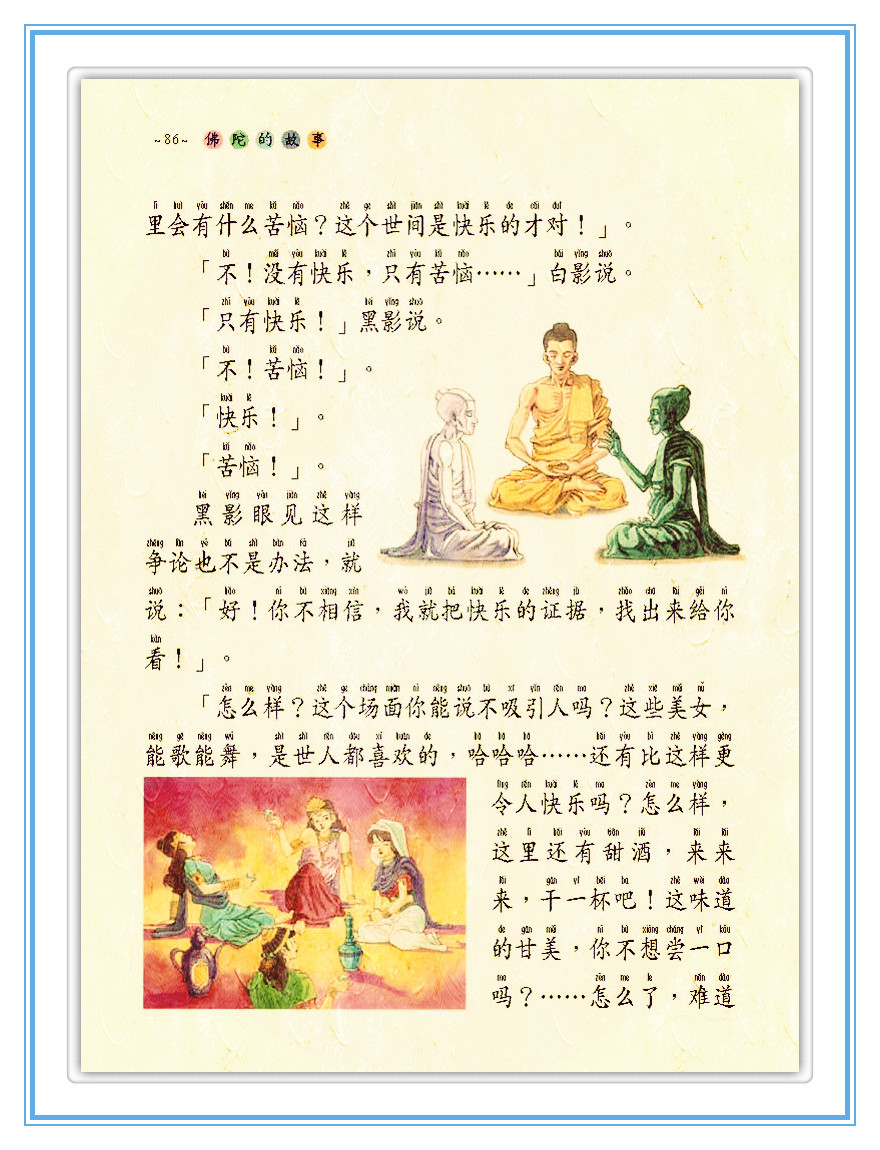 ~86~ 佛陀的故事
里会有什么苦恼？这个世间是快乐的才对！」。
「不！没有快乐，只有苦恼……」白影说。
「只有快乐！」黑影说。
「不！苦恼！」。
「快乐！」。
「苦恼！」。
黑影眼见这样
争论也不是办法，就
说：「好！你不相信，我就把快乐的证据，找出来给你
看！」。
「怎么样？这个场面你能说不吸引人吗？这些美女，
能歌能舞，是世人都喜欢的，哈哈哈……还有比这样更
令人快乐吗？怎么样，
这里还有甜酒，来来
来，干一杯吧！这味道
的甘美，你不想尝一口
吗？……怎么了，难道